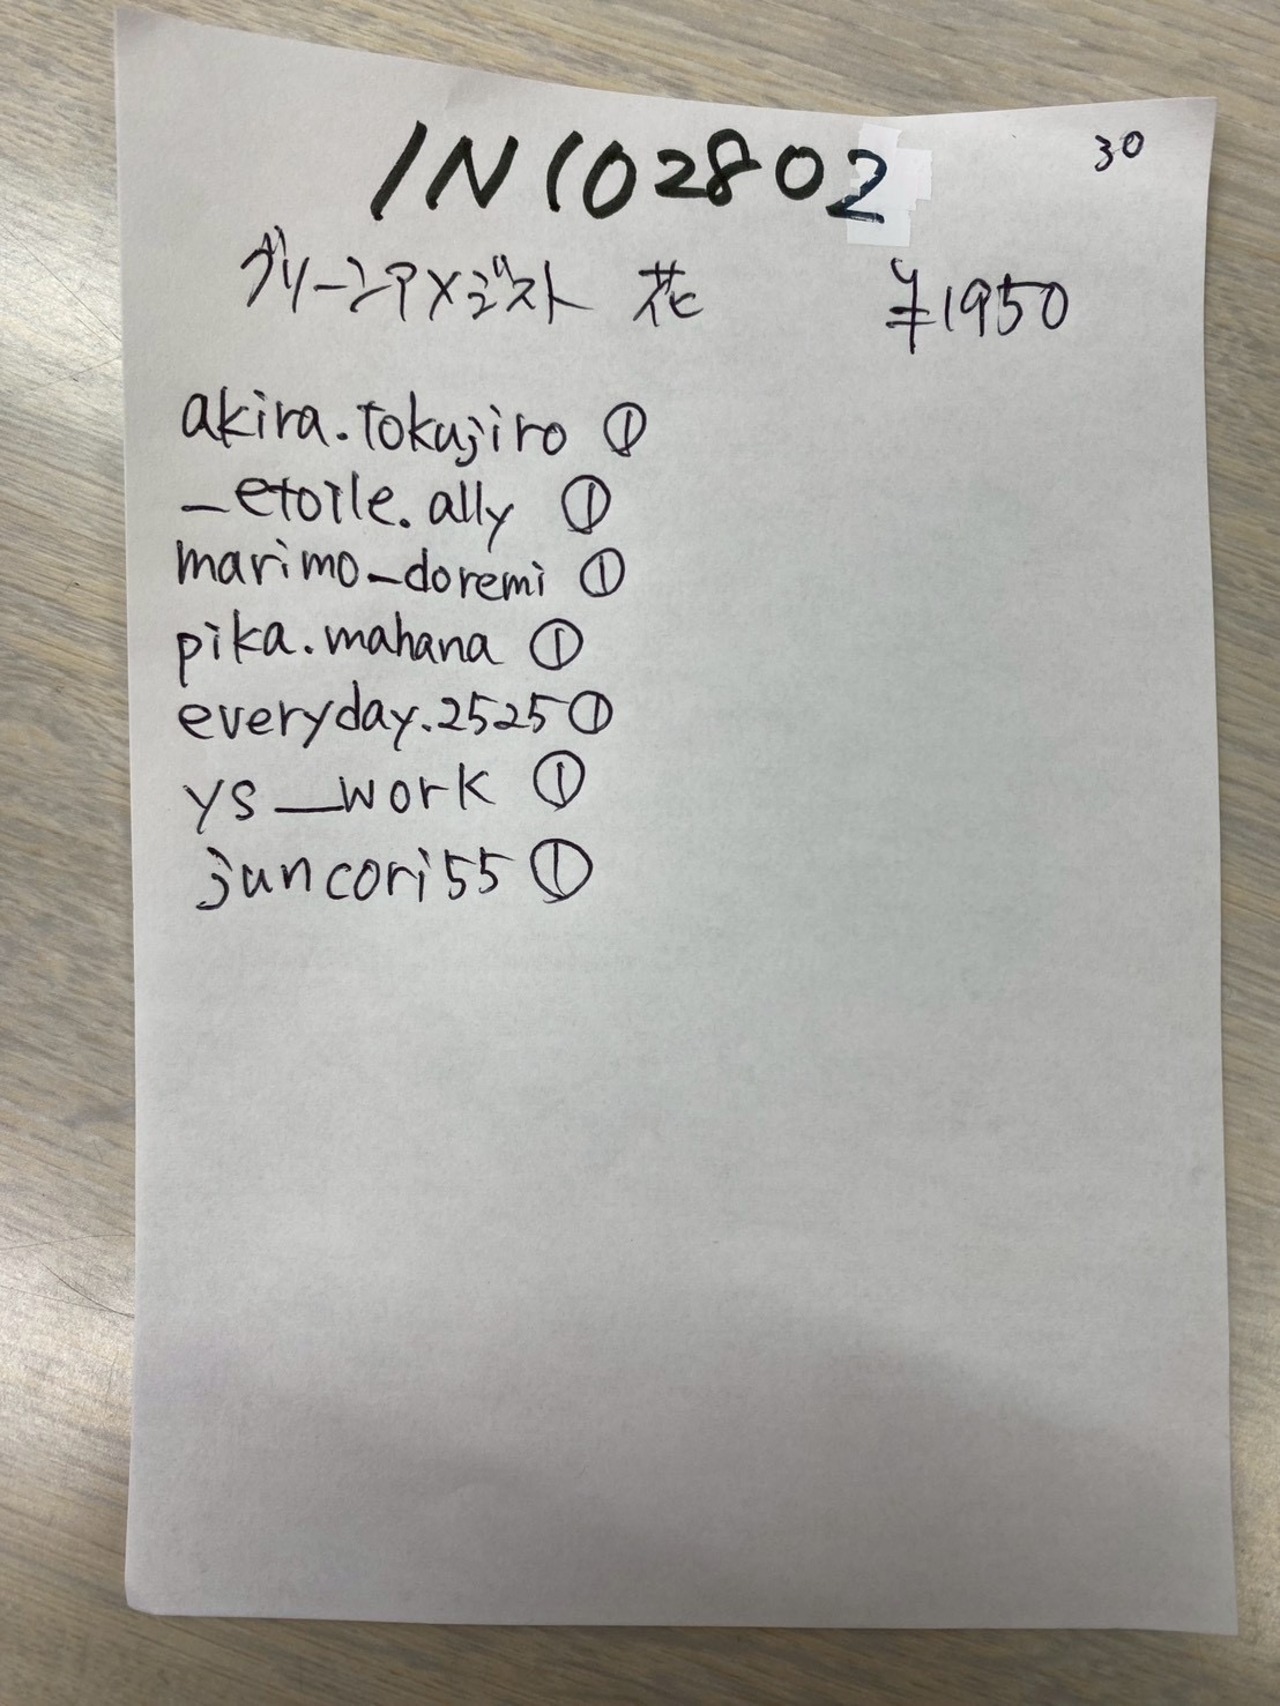 IN102802
30
グリーンアメジスト 花 ¥1950
akira.tokujiro ①
_etoile.ally ①
marimo_doremi ①
pika.mahana ①
everyday.2525 ①
ys__work ①
juncori55 ①